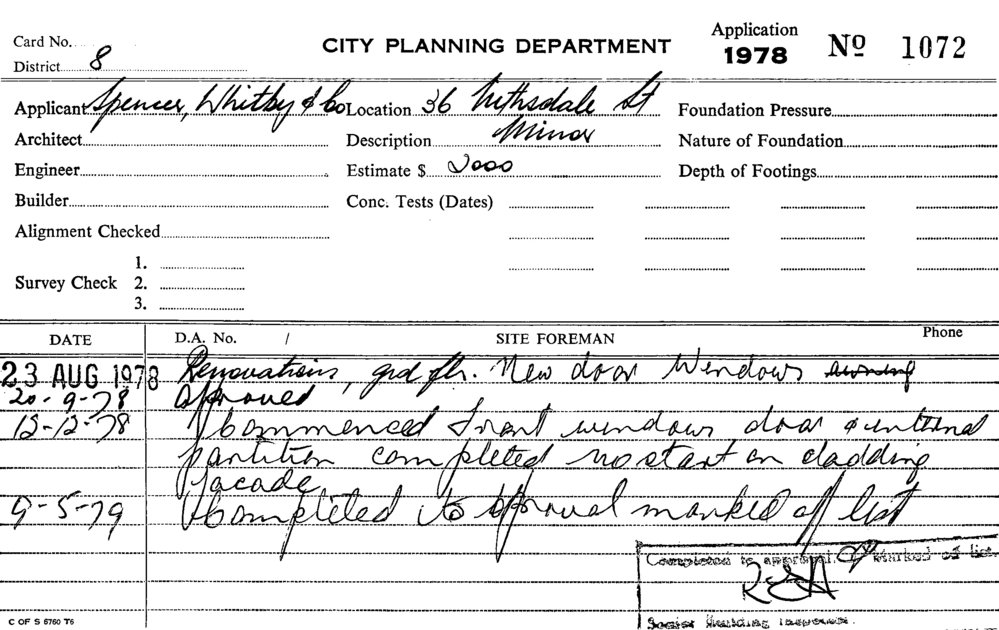 Application
Card No. CITY PLANNING DEPARTMENT 1978 No 1072
District 8
Applicant Spencer, Whitby & Co Location 36 Nithsdale St Foundation Pressure
Architect Description Minor Nature of Foundation
Engineer Estimate $ 2000 Depth of Footings
Builder Conc. Tests (Dates)
Alignment Checked
1.
Survey Check 2.
3.
DATE D.A. No. / SITE FOREMAN Phone
23 AUG 1978 Renovations, grd flr. New door Windows awning
20-9-78 Approved
12-78 Commenced Front windows door & internal
partition completed no start on cladding
facade
9-5-79 Completed to approval marked off list
Completed to approval. Marked off list.
Senior Building Inspector.
C OF S 5760 T6